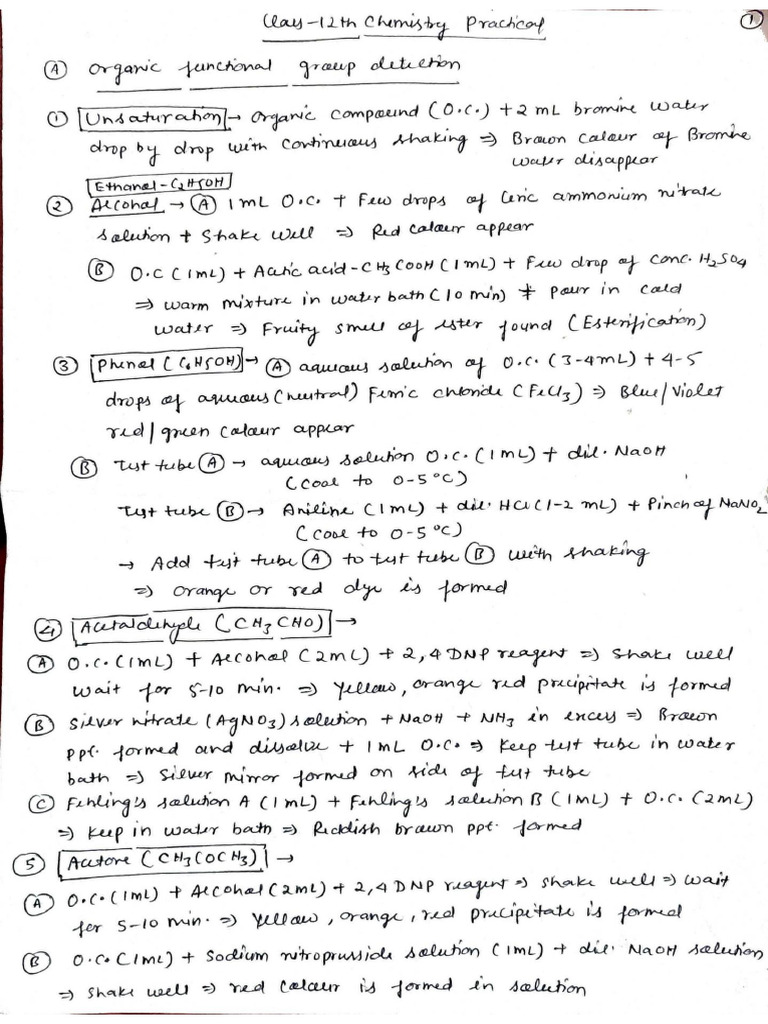 Class-12th Chemistry Practical
①
Ⓐ Organic functional group detection
① Unsaturation → Organic compound (O.C.) + 2 mL bromine water
drop by drop with continuous shaking ⇒ Brown colour of Bromine
water disappear
Ethanol-C2H5OH
② Alcohol → Ⓐ 1 mL O.C. + Few drops of Ceric ammonium nitrate
solution + Shake well ⇒ Red colour appear
Ⓑ O.C (1mL) + Acetic acid-CH3COOH (1mL) + Few drop of conc. H2SO4
⇒ warm mixture in water bath (10 min) + Pour in cold
water ⇒ Fruity smell of ester found (Esterification)
③ Phenol (C6H5OH) → Ⓐ aqueous solution of O.C. (3-4mL) + 4-5
drops of aqueous (neutral) Ferric chloride (FeCl3) ⇒ Blue/Violet
red/green colour appear
Ⓑ Test tube Ⓐ → aqueous solution O.C. (1mL) + dil. NaOH
(cool to 0-5°C)
Test tube Ⓑ → Aniline (1mL) + dil. HCl (1-2 mL) + Pinch of NaNO2
(cool to 0-5°C)
→ Add test tube Ⓐ to test tube Ⓑ with shaking
⇒ orange or red dye is formed
④ Acetaldehyde (CH3CHO) →
Ⓐ O.C. (1mL) + Alcohol (2mL) + 2,4 DNP reagent ⇒ Shake well
wait for 5-10 min. ⇒ Yellow, orange red precipitate is formed
Ⓑ Silver nitrate (AgNO3) solution + NaOH + NH3 in excess ⇒ Brown
ppt. formed and dissolve + 1mL O.C. ⇒ Keep test tube in water
bath ⇒ Silver mirror formed on side of test tube
Ⓒ Fehling's solution A (1mL) + Fehling's solution B (1mL) + O.C. (2mL)
⇒ Keep in water bath ⇒ Reddish brown ppt. formed
⑤ Acetone (CH3COCH3) →
Ⓐ O.C. (1mL) + Alcohol (2mL) + 2,4 DNP reagent ⇒ shake well ⇒ Wait
for 5-10 min. ⇒ Yellow, orange, red precipitate is formed
Ⓑ O.C. (1mL) + Sodium nitroprusside solution (1mL) + dil. NaOH solution
⇒ Shake well ⇒ red colour is formed in solution